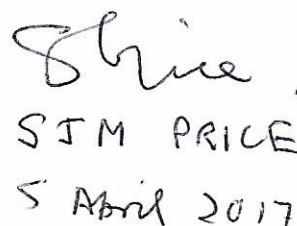 SPrice
SJM PRICE
5 April 2017